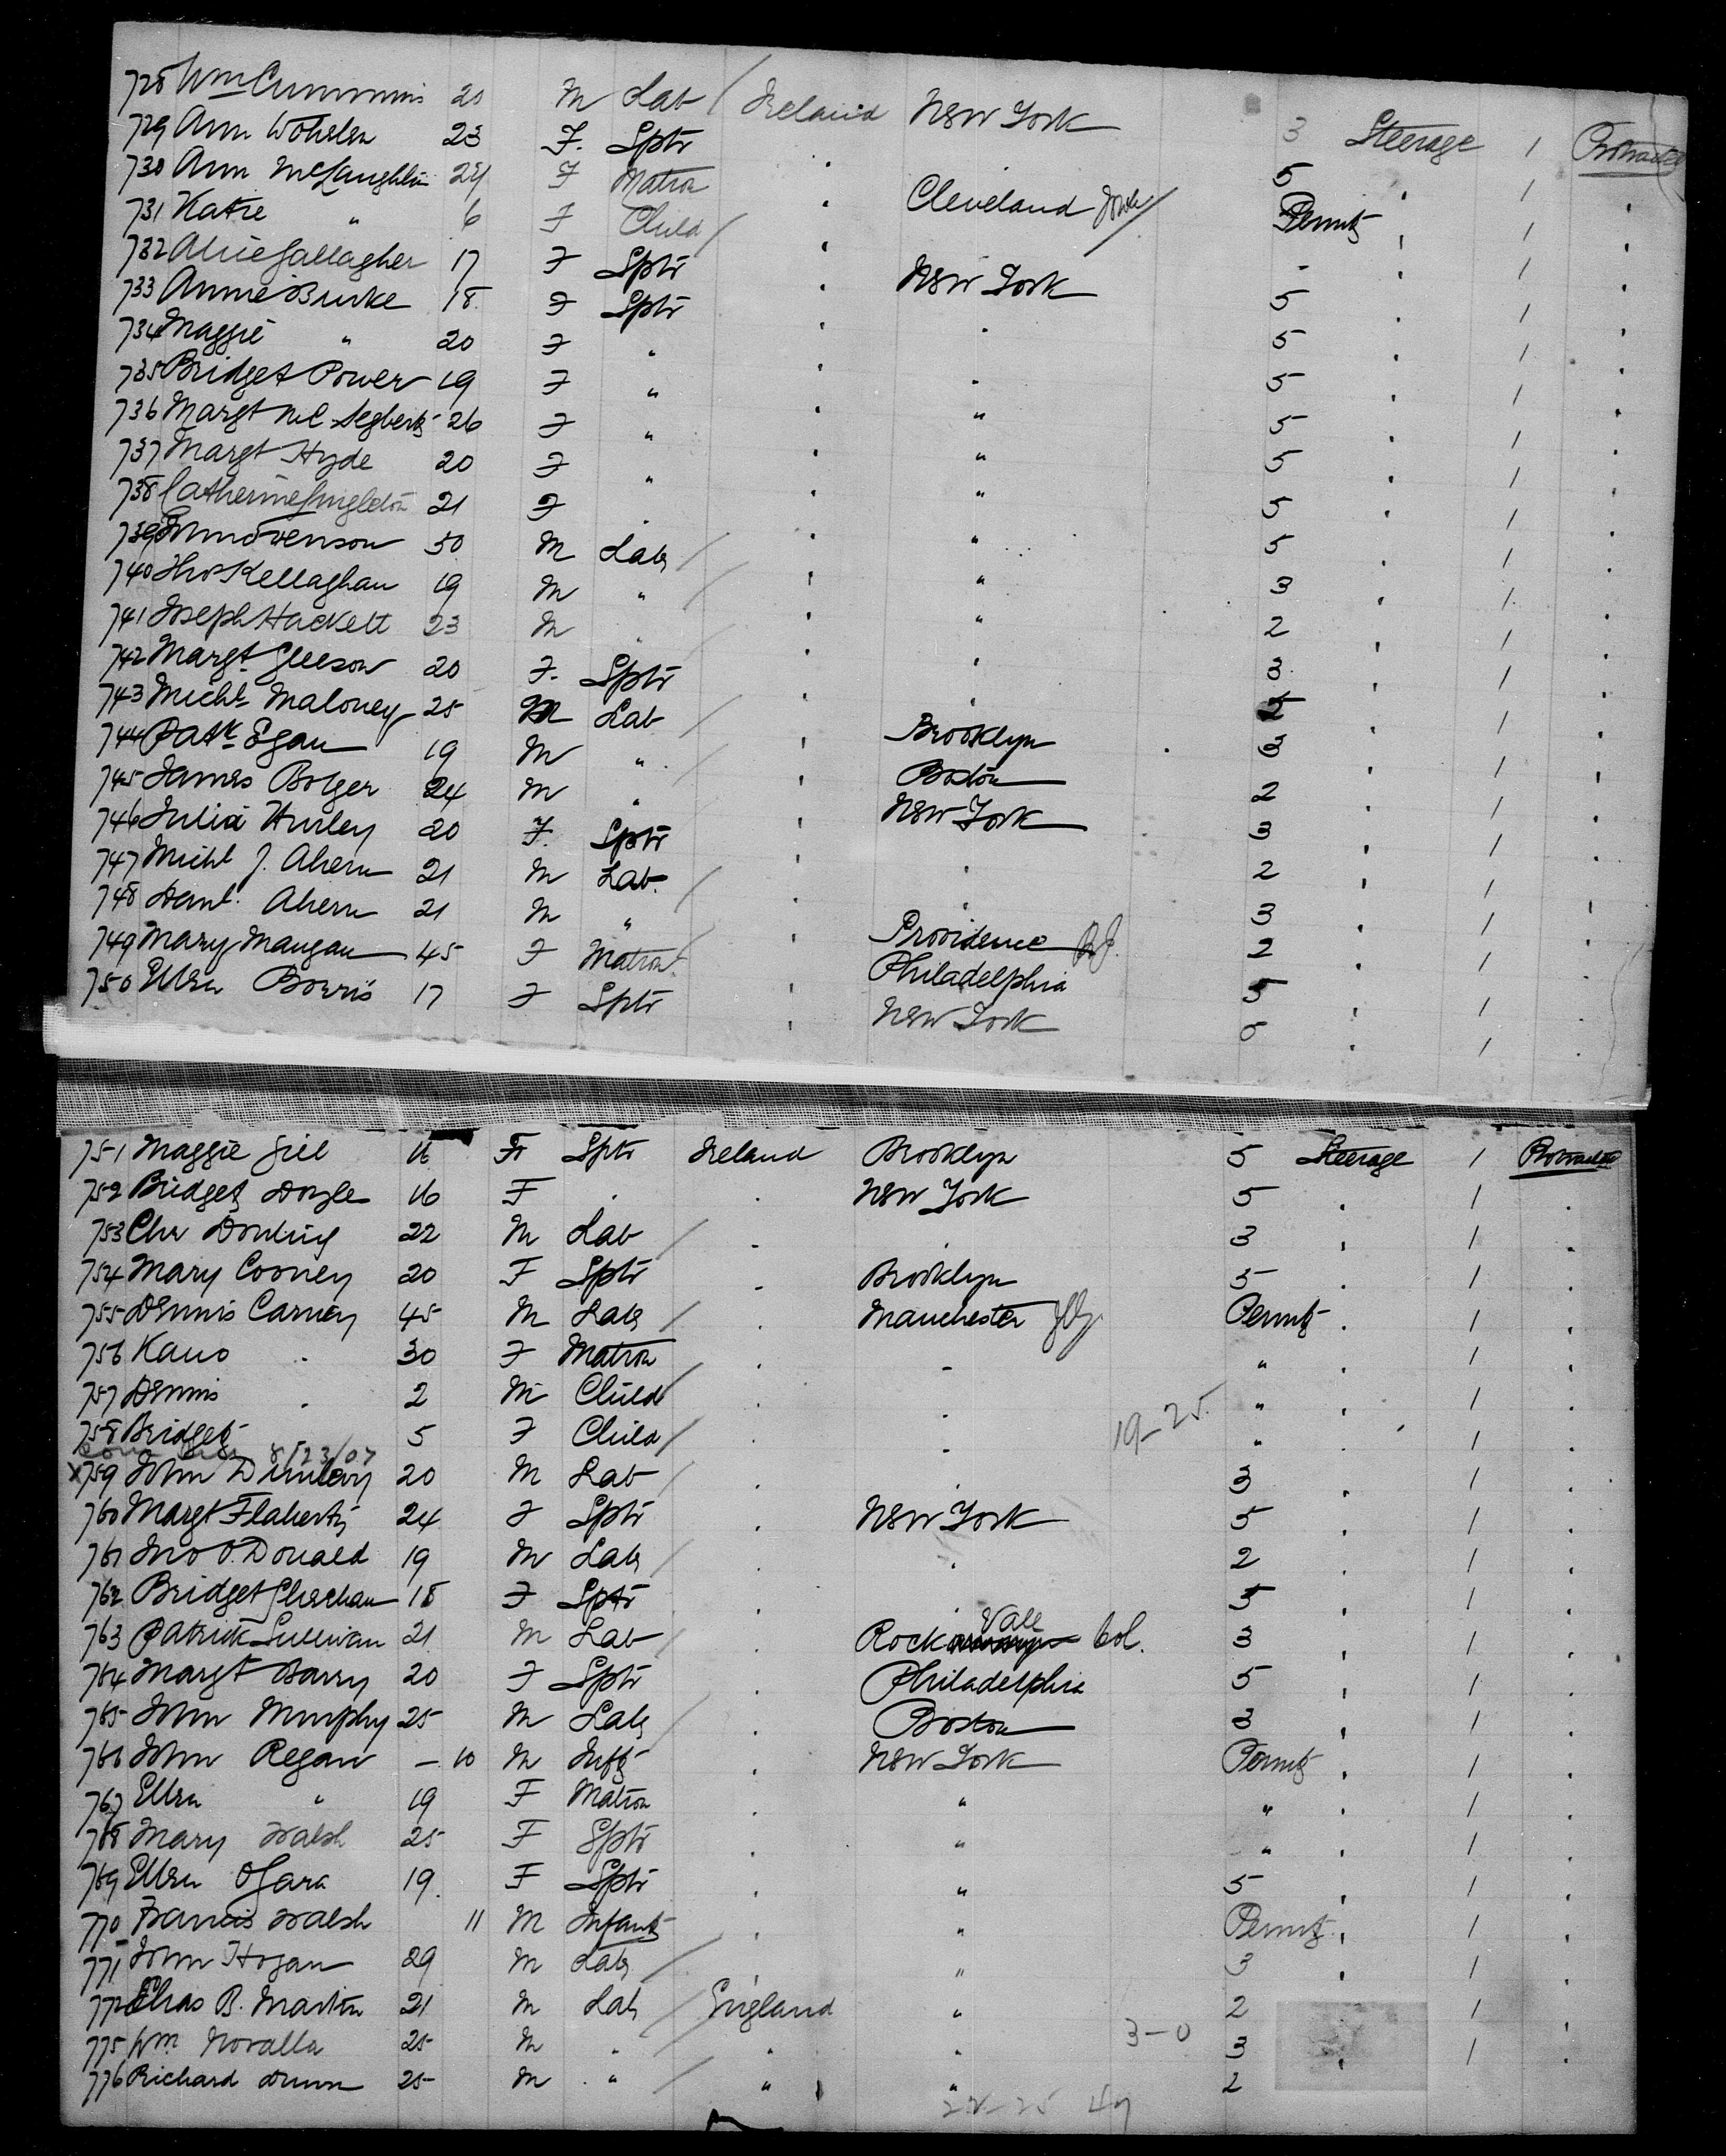 728 Wm Cummins 20 M Lab / Ireland New York 3 Steerage 1 Protracted
729 Ann 23 F. Sptr " " 5 " 1 "
730 Ann McLaughlin 24 F Matron " Cleveland / Permit " 1 "
731 Katie " 6 F Child / " " " 1 "
732 Alice Gallagher 17 F Sptr " New York 5 " 1 "
733 Annie Burke 18 F Sptr " " 5 " 1 "
734 Maggie " 20 F " " " 5 " 1 "
735 Bridget Power 19 F " " " 5 " 1 "
736 Margt 26 F " " " 5 " 1 "
737 Margt Hyde 20 F " " " 5 " 1 "
738 Catherine Singleton 21 F " " " 5 " 1 "
739 50 M Lab / " " 3 " 1 "
740 Thos Kellaghan 19 M " / " " 2 " 1 "
741 Joseph Hackett 23 M " / " " 3 " 1 "
742 Margt Gleeson 20 F. Sptr " " 5 " 1 "
743 Michl Maloney 25 M Lab / " Brooklyn 3 " 1 "
744 Patk Egan 19 M " / " Boston 2 " 1 "
745 James Bolger 24 M " " New York 3 " 1 "
746 Julia Hurley 20 F. Sptr " " 2 " 1 "
747 Michl J. Ahern 21 M Lab. / " " 3 " 1 "
748 Danl. Ahern 21 M " " Providence R.I. 2 " 1 "
749 Mary Mangan 45 F Matron " Philadelphia 5 " 1 "
750 Ellen Borris 17 F Sptr " New York 5 " 1 "
751 Maggie Gill 16 F Sptr Ireland Brooklyn 5 Steerage 1 Protracted
752 Bridget Doyle 16 F " " New York 5 " 1 "
753 Chr Dowling 22 M Lab / " " 3 " 1 "
754 Mary Cooney 20 F Sptr " Brooklyn 5 " 1 "
755 Dennis Carney 45 M Lab / " Manchester Permit " 1 "
756 " 30 F Matron " " " " 1 "
757 Dennis " 2 M Child / " " " " 1 "
758 Bridget 5 F Child / " " 19-25 " " 1 "
8/23/07
x759 John Dunleavy 20 M Lab / " " 3 " 1 "
760 Margt Flaherty 24 F Sptr " New York 5 " 1 "
761 Jno O'Donald 19 M Lab / " " 2 " 1 "
762 Bridget 18 F Sptr " " 5 " 1 "
763 Patrick Sullivan 21 M Lab / " Rock Vale Col. 3 " 1 "
764 Margt Barry 20 F Sptr " Philadelphia 5 " 1 "
765 John Murphy 25 M Lab / " Boston 3 " 1 "
766 John Regan - 10 M Inft " New York Permit " 1 "
767 Ellen " 19 F Matron " " " " 1 "
768 Mary Walsh 25 F Sptr " " " " 1 "
769 Ellen O'Gara 19 F Sptr " " 5 " 1 "
770 Francis Walsh 11 M Infant " " Permit " 1 "
771 John Hogan 29 M Lab / " " 3 " 1 "
772 Chas B. Martin 21 M Lab / England " 2 1 "
775 Wm. Novalla 25 M " / " " 3-0 3 " 1 "
776 Richard Dunn 25 M " / " " 2